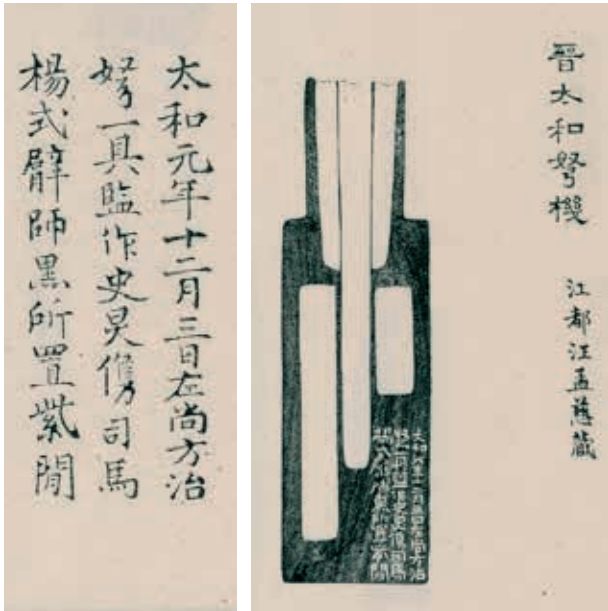 晉太和弩機
江都汪孟慈藏
太和元年十二月三日左尚方治
弩一具監作史炅儁司馬
楊式臂師黑所置紫間